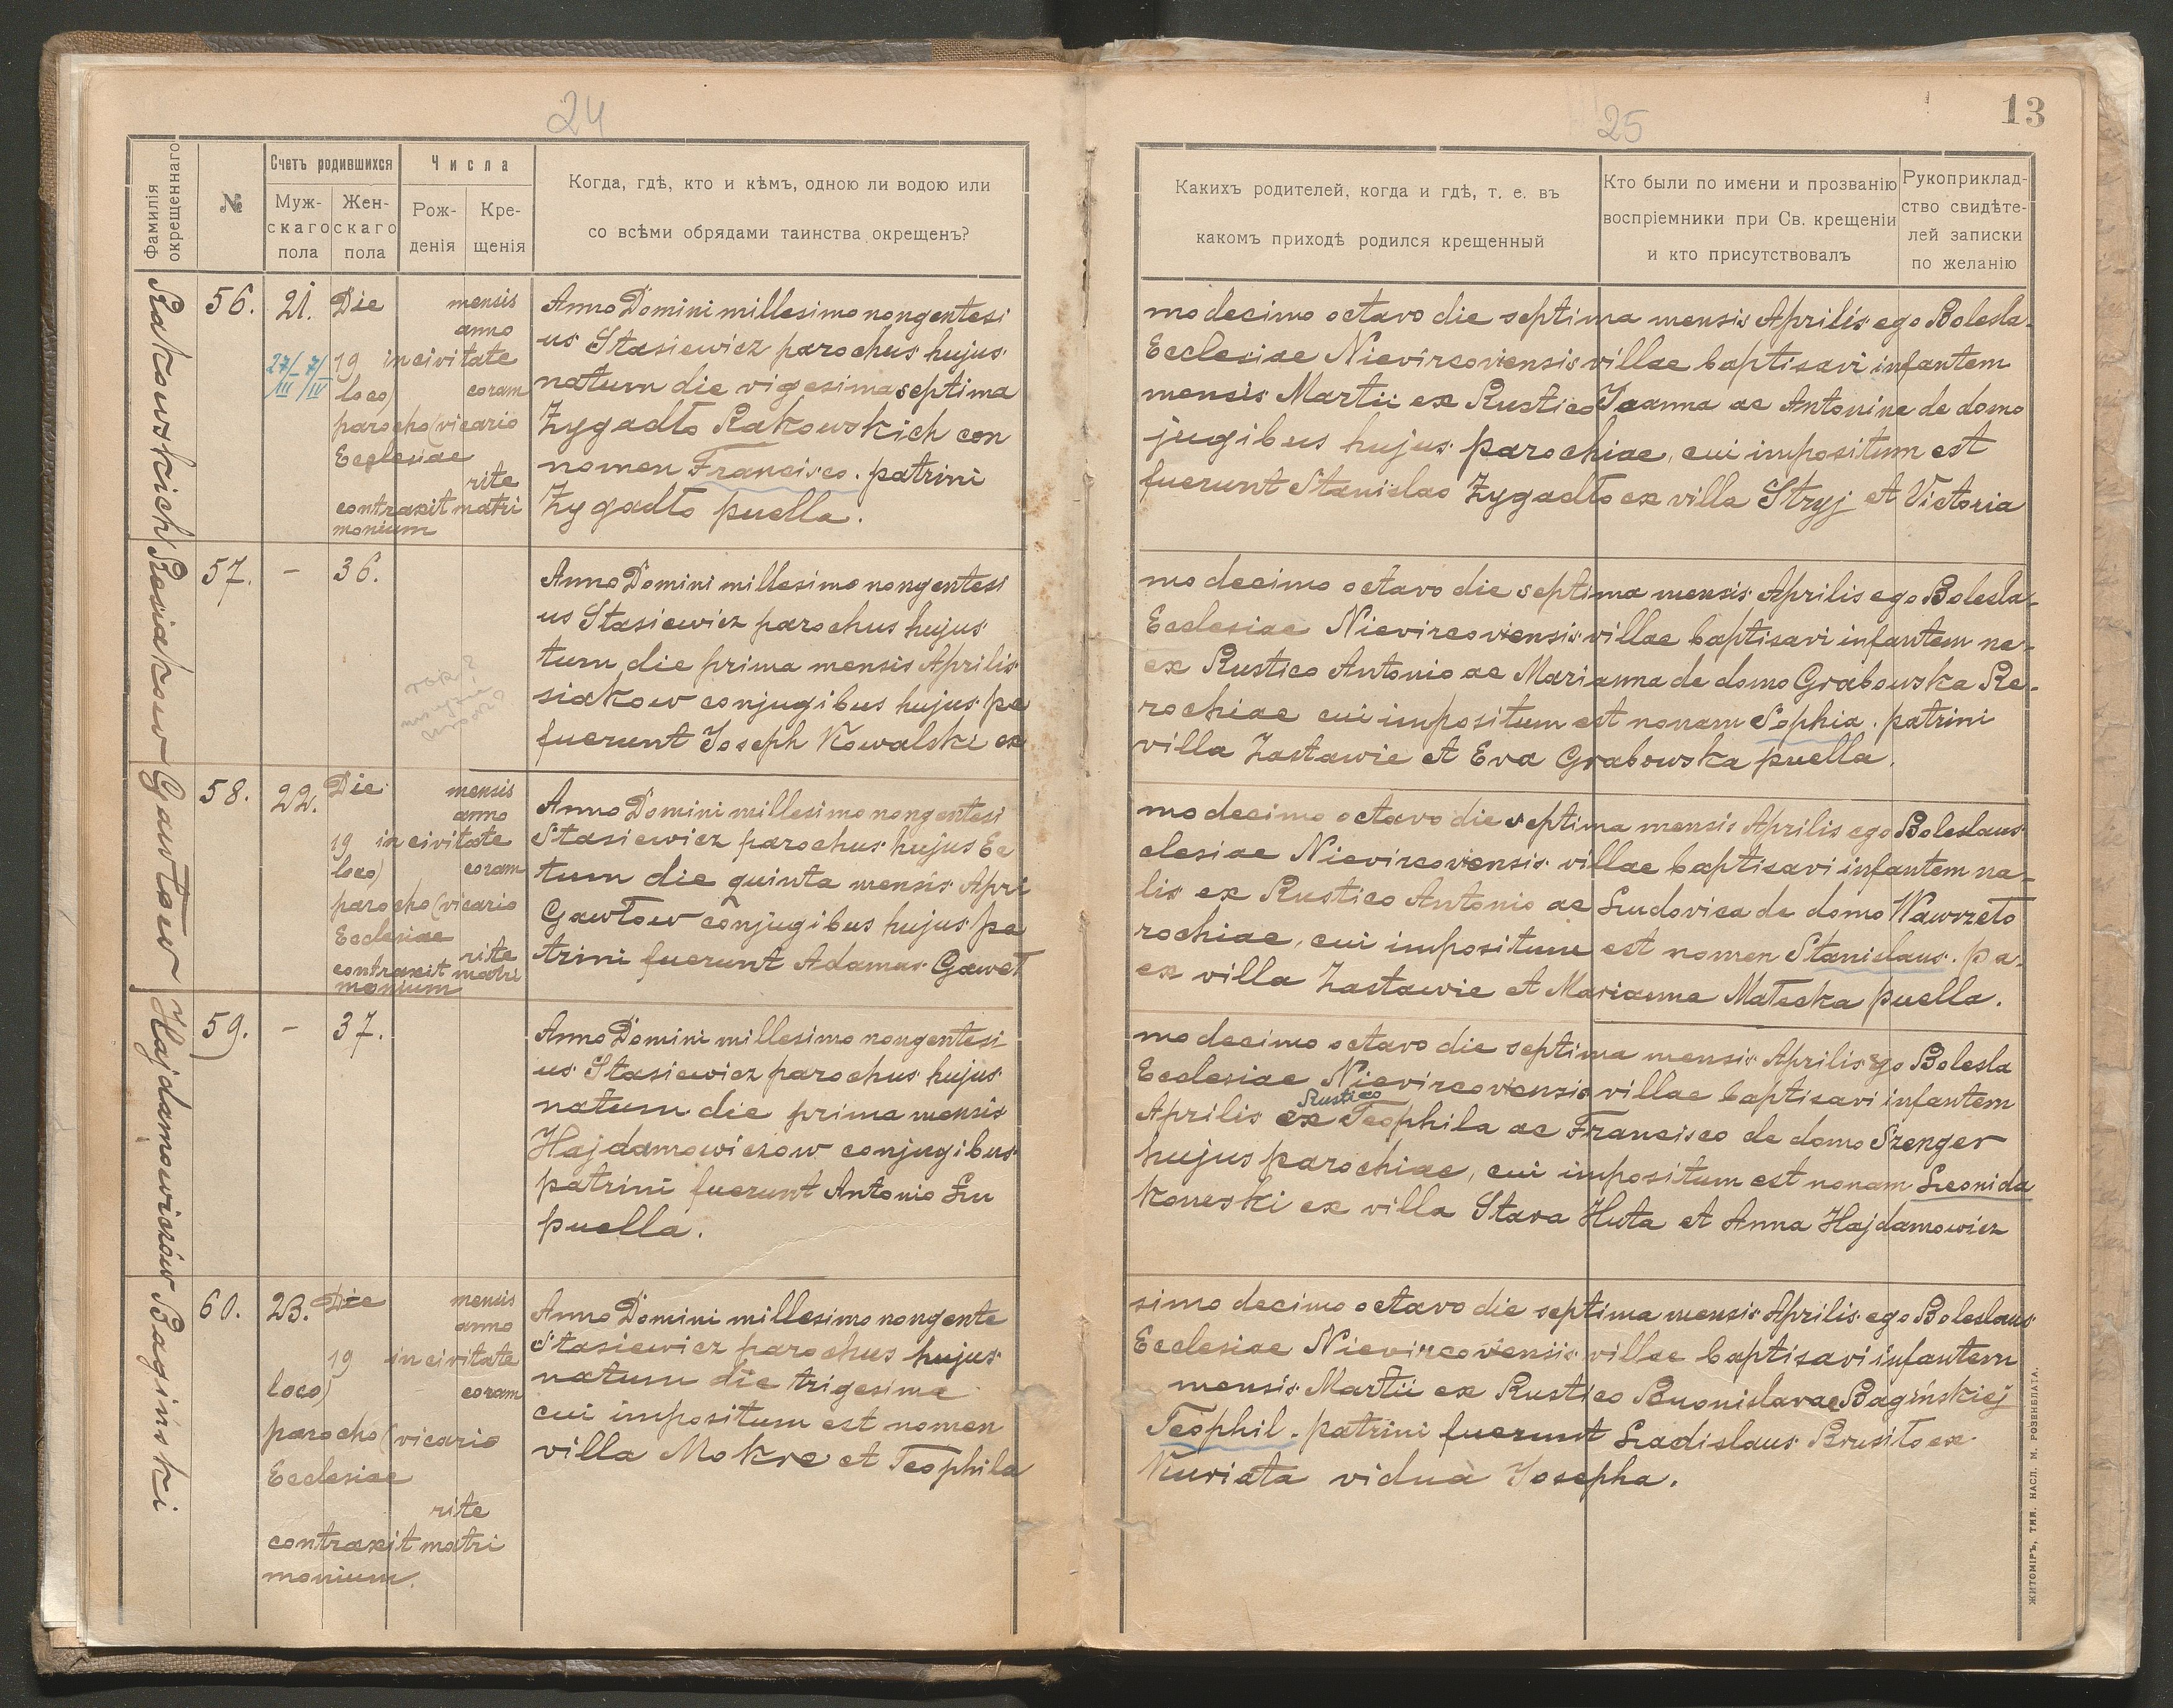 24
Фамилія
окрещеннаго
№
Счетъ родившихся
Муж-
скаго
пола
Жен-
скаго
пола
Числа
Рож-
денія
Кре-
щенія
Когда, гдѣ, кто и кѣмъ, одною ли водою или
со всѣми обрядами таинства окрещенъ?
Rakowskich
56.
21.
27/III - 7/IV
Die mensis
anno
19 in civitate
loco) coram
parocho (vicario
Ecclesiae
rite
contraxit matri
monium
Anno Domini millesimo nongentesi
us Stasiewicz parochus hujus
natum die vigesima septima
Zygadło Rakowskich con
nomen Francisco. patrini
Zygadło puella.
Resiakow
57.
-
36.
Anno Domini millesimo nongentesi
us Stasiewicz parochus hujus
tum die prima mensis Aprilis
siakow conjugibus hujus pa
fuerunt Joseph Kowalski ex
Gawłow
58.
22.
Die mensis
anno
19 in civitate
loco) coram
parocho (vicario
Ecclesiae
rite
contraxit matri
monium
Anno Domini millesimo nongentesi
Stasiewicz parochus hujus Ec
tum die quinta mensis Apri
Gawłow conjugibus hujus pa
trini fuerunt Adamus Gaweł
Hajdamowiczów
59.
-
37.
Anno Domini millesimo nongentesi
us Stasiewicz parochus hujus
natum die prima mensis
Hajdamowiczow conjugibus
patrini fuerunt Antonio Lu
puella.
Bagiński
60.
23.
Die mensis
anno
19 in civitate
loco) coram
parocho (vicario
Ecclesiae
rite
contraxit matri
monium.
Anno Domini millesimo nongente
Stasiewicz parochus hujus
natum die trigesima
cui impositum est nomen
villa Mokre et Teophila
25
13
Какихъ родителей, когда и гдѣ, т. е. въ
какомъ приходѣ родился крещенный
Кто были по имени и прозванію
воспріемники при Св. крещеніи
и кто присутствовалъ
Рукоприклад-
ство свидѣте-
лей записки
по желанію
mo decimo octavo die septima mensis Aprilis ego Bolesla-
Ecclesiae Nievircoviensis villae baptisavi infantem
mensis Martii ex Rustico Joanna ac Antonina de domo
jugibus hujus parochiae, cui impositum est
fuerunt Stanislao Zygadło ex villa Stryj et Victoria
mo decimo octavo die septima mensis Aprilis ego Bolesla-
Ecclesiae Nievircoviensis villae baptisavi infantem na-
ex Rustico Antonio ac Marianna de domo Grabowska Re-
rochiae cui impositum est nonam Sophia. patrini
villa Zastawie et Eva Grabowska puella.
mo decimo octavo die septima mensis Aprilis ego Boleslaus
clesiae Nievircoviensis villae baptisavi infantem na-
lis ex Rustico Antonio ac Ludovica de domo Wawrzeto
rochiae, cui impositum est nomen Stanislaus. pa-
ex villa Zastawie et Marianna Małecka puella.
mo decimo octavo die septima mensis Aprilis ego Bolesla
Ecclesiae Nievircoviensis villae baptisavi infantem
Rustico
Aprilis ex Teophila ac Francisco de domo Szenger
hujus parochiae, cui impositum est nonam Leonida
koweski ex villa Stara Huta et Anna Hajdamowicz
simo decimo octavo die septima mensis Aprilis ego Boleslaus
Ecclesiae Nievircoviensis villae baptisavi infantem
mensis Martii ex Rustico Buonislavae Bagińskiej
Teophil. patrini fuerunt Ladislaus Brusiło ex
Kuriata vidua Josepha.
ЖИТОМІРЪ, ТИП. НАСЛ. М. РОЗЕНБЛАТА.